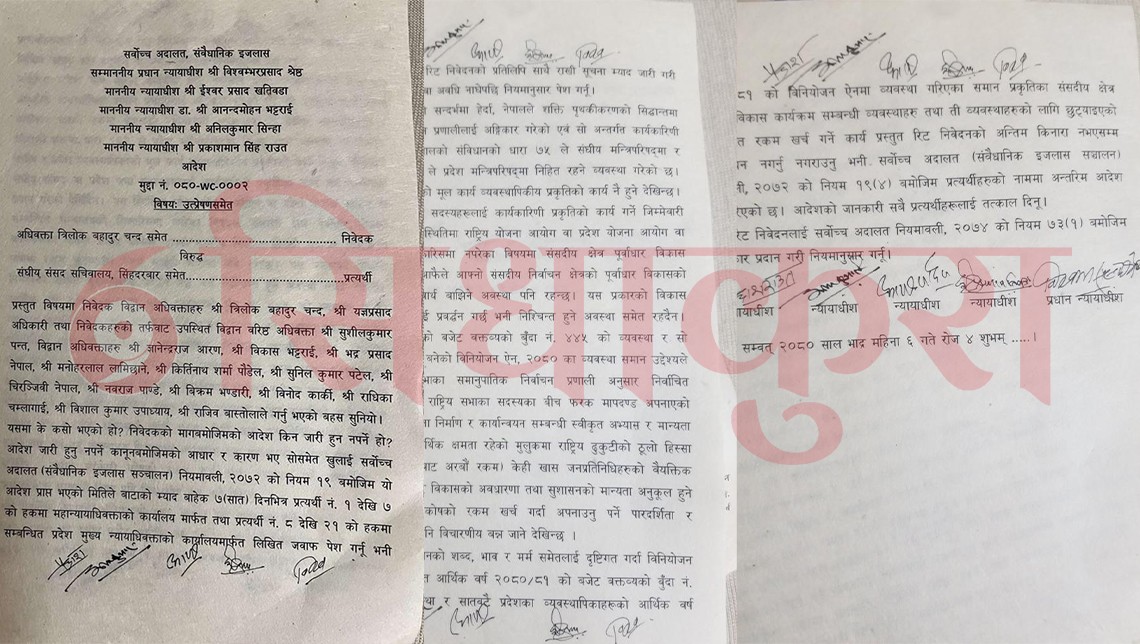 सर्वोच्च अदालत, संवैधानिक इजलास
सम्माननीय प्रधान न्यायाधीश श्री विश्वम्भरप्रसाद श्रेष्ठ
माननीय न्यायाधीश श्री ईश्वर प्रसाद खतिवडा
माननीय न्यायाधीश डा. श्री आनन्दमोहन भट्टराई
माननीय न्यायाधीश श्री अनिलकुमार सिन्हा
माननीय न्यायाधीश श्री प्रकाशमान सिंह राउत
आदेश
मुद्दा नं. ०८०-WC-०००२
विषयः उत्प्रेषणसमेत
अधिवक्ता त्रिलोक बहादुर चन्द समेत ................................................ निवेदक
विरुद्ध
संघीय संसद सचिवालय, सिंहदरवार समेत................................................प्रत्यर्थी
प्रस्तुत विषयमा निवेदक विद्वान अधिवक्ताहरु श्री त्रिलोक बहादुर चन्द, श्री यज्ञप्रसाद
अधिकारी तथा निवेदकहरुको तर्फवाट उपस्थित विद्वान वरिष्ठ अधिवक्ता श्री सुशीलकुमार
पन्त, विद्वान अधिवक्ताहरु श्री ज्ञानेन्द्रराज आरण, श्री विकास भट्टराई, श्री भद्र प्रसाद
नेपाल, श्री मनोहरलाल लामिछाने, श्री किर्तिनाथ शर्मा पौडेल, श्री सुनिल कुमार पटेल, श्री
चिरञ्जिवी नेपाल, श्री नवराज पाण्डे, श्री विक्रम भण्डारी, श्री विनोद कार्की, श्री राधिका
चम्लागाई, श्री विशाल कुमार उपाध्याय, श्री राजिव बास्तोलाले गर्नु भएको बहस सुनियो।
यसमा के कसो भएको हो? निवेदकको मागबमोजिमको आदेश किन जारी हुन नपर्ने हो?
आदेश जारी हुनु नपर्ने कानूनबमोजिमको आधार र कारण भए सोसमेत खुलाई सर्वोच्च
अदालत (संवैधानिक इजलास सञ्चालन) नियमावली, २०७२ को नियम १९ बमोजिम यो
आदेश प्राप्त भएको मितिले बाटाको म्याद बाहेक ७(सात) दिनभित्र प्रत्यर्थी नं. १ देखि ७
को हकमा महान्यायाधिवक्ताको कार्यालय मार्फत तथा प्रत्यर्थी नं. ८ देखि २१ को हकमा
सम्बन्धित प्रदेश मुख्य न्यायाधिवक्ताको कार्यालयमार्फत लिखित जवाफ पेश गर्नू भनी
रिट निवेदनको प्रतिलिपि साथै राखी सूचना म्याद जारी गरी
वा अवधि नाघेपछि नियमानुसार पेश गर्नू।
सन्दर्भमा हेर्दा, नेपालले शक्ति पृथकीकरणको सिद्धान्तमा
प्रणालीलाई अङ्गिकार गरेको एवं सो अन्तर्गत कार्यकारिणी
ालको संविधानको धारा ७५ ले संघीय मन्त्रिपरिषद्मा र
ले प्रदेश मन्त्रिपरिषद्मा निहित रहने व्यवस्था गरेको छ।
को मूल कार्य व्यवस्थापिकीय प्रकृतिको कार्य नै हुने देखिन्छ।
सदस्यहरूलाई कार्यकारिणी प्रकृतिको कार्य गर्ने जिम्मेवारी
स्थितिमा राष्ट्रिय योजना आयोग वा प्रदेश योजना आयोग वा
ारिसमा नपरेका विषयमा संसदीय क्षेत्र पूर्वाधार विकास
आफैले आफ्नो संसदीय निर्वाचन क्षेत्रको पूर्वाधार विकासको
ार्य बाझिने अवस्था पनि रहन्छ। यस प्रकारको विकास
ई प्रवर्द्धन गर्छ भनी निश्चिन्त हुने अवस्था समेत रहदैन।
को बजेट वक्तव्यको बुँदा नं. ४४५ को व्यवस्था र सो
बनेको विनियोजन ऐन, २०८० का व्यवस्था समान उद्देश्यले
भाका समानुपातिक निर्वाचन प्रणाली अनुसार निर्वाचित
राष्ट्रिय सभाका सदस्यका बीच फरक मापदण्ड अपनाएको
ा निर्माण र कार्यान्वयन सम्बन्धी स्वीकृत अभ्यास र मान्यता
र्थिक क्षमता रहेको मुलुकमा राष्ट्रिय ढुकुटीको ठूलो हिस्सा
ाट अरबौं रकम) केही खास जनप्रतिनिधिहरुको वैयक्तिक
विकासको अवधारणा तथा सुशासनको मान्यता अनुकूल हुने
कोषको रकम खर्च गर्दा अपनाउनु पर्ने पारदर्शिता र
नि विचारणीय बन्न जाने देखिन्छ ।
ानको शब्द, भाव र मर्म समेतलाई दृष्टिगत गर्दा विनियोजन
त आर्थिक वर्ष २०८०/८१ को बजेट वक्तव्यको बुँदा नं.
था र सातवटै प्रदेशका व्यवस्थापिकाहरूको आर्थिक वर्ष
८१ को विनियोजन ऐनमा व्यवस्था गरिएका समान प्रकृतिका संसदीय क्षेत्र
विकास कार्यक्रम सम्बन्धी व्यवस्थाहरु तथा ती व्यवस्थाहरुको लागि छुट्याइएको
त रकम खर्च गर्ने कार्य प्रस्तुत रिट निवेदनको अन्तिम किनारा नभएसम्म
ान नगर्नु नगराउनु भनी सर्वोच्च अदालत (संवैधानिक इजलास सञ्चालन)
ी, २०७२ को नियम १९(४) बमोजिम प्रत्यर्थीहरुको नाममा अन्तरिम आदेश
एको छ। आदेशको जानकारी सबै प्रत्यर्थीहरूलाई तत्काल दिनू।
रिट निवेदनलाई सर्वोच्च अदालत नियमावली, २०७४ को नियम ७३(१) बमोजिम
कार प्रदान गरी नियमानुसार गर्नू।
ायाधीश न्यायाधीश न्यायाधीश न्यायाधीश प्रधान न्यायाधीश
सम्वत् २०८० साल भाद्र महिना ६ गते रोज ४ शुभम् .....।